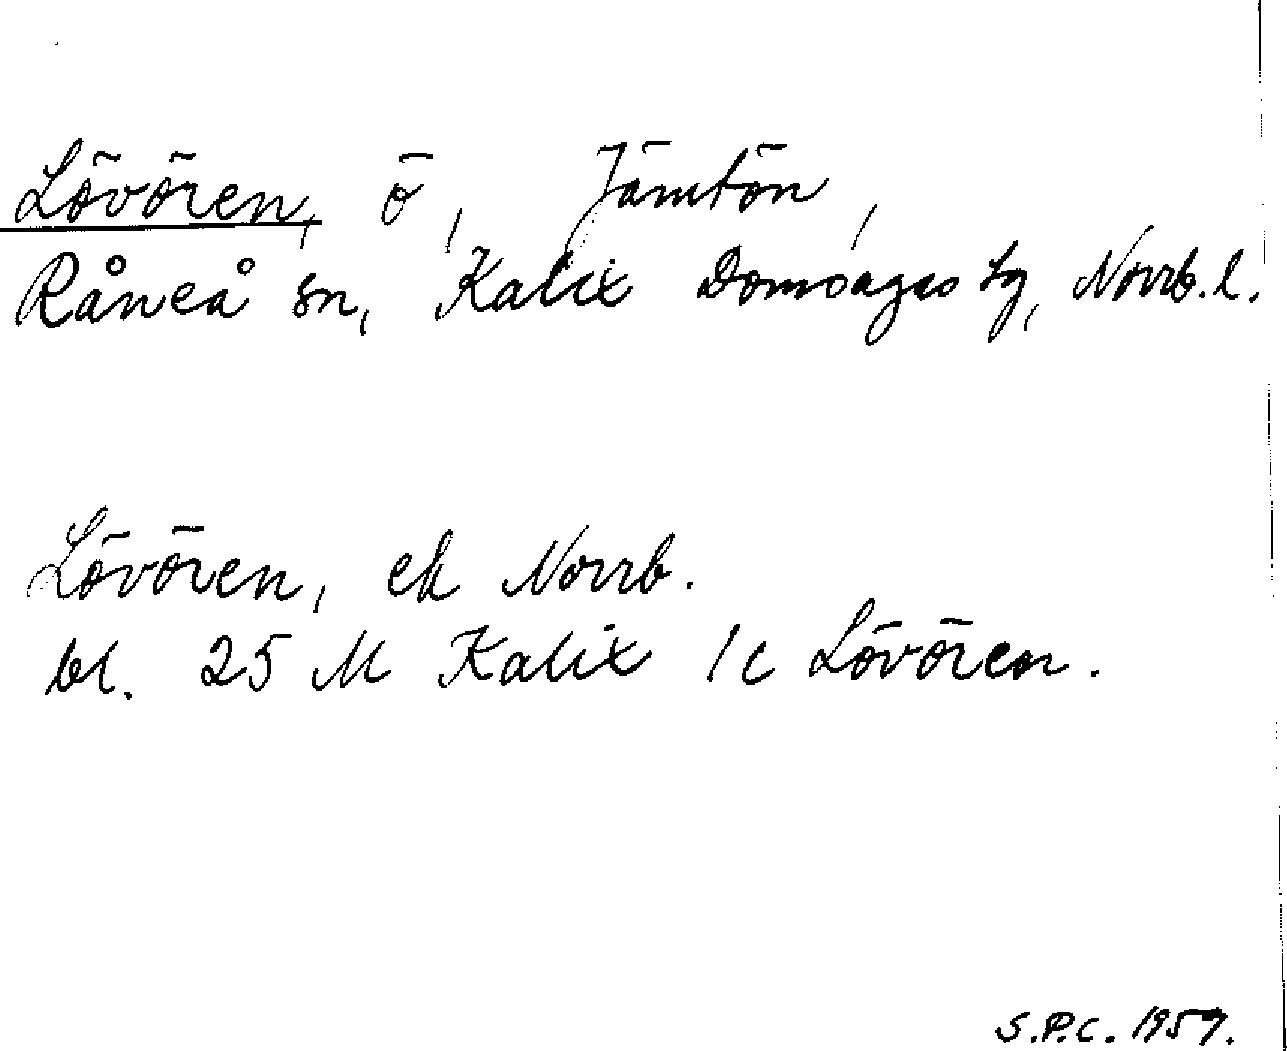 Lövören, ö, Jämtön,
Råneå sn, Kalix Domsagas tg, Norrb. l.
Lövören, ek Norrb.
bl. 25 M Kalix 1c Lövören.
S.P.C. 1957.